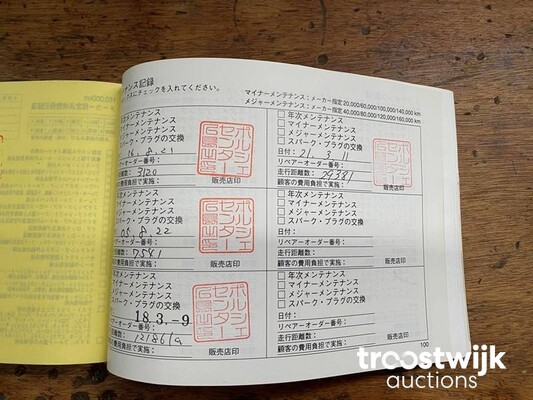 ナンス記録
クスにチェックを入れてください。
マイナーメンテナンス：メーカー指定 20,000/60,000/100,000/140,000 km
メジャーメンテナンス：メーカー指定 40,000/80,000/120,000/160,000 km
年次メンテナンス
マイナーメンテナンス
メジャーメンテナンス
スパーク・プラグの交換
16.8.21
ーアーオーダー番号：
3120
顧客の費用負担で実施：
販売店印
ポルシェ
センター
年次メンテナンス
マイナーメンテナンス
メジャーメンテナンス
スパーク・プラグの交換
日付：21 3 11
リペアーオーダー番号：
走行距離数：29381
顧客の費用負担で実施：
販売店印
ポルシェ
センター
年次メンテナンス
マイナーメンテナンス
メジャーメンテナンス
スパーク・プラグの交換
05.8.22
アーオーダー番号：
7541
の費用負担で実施：
販売店印
ポルシェ
センター
年次メンテナンス
マイナーメンテナンス
メジャーメンテナンス
スパーク・プラグの交換
日付：
リペアーオーダー番号：
走行距離数：
顧客の費用負担で実施：
販売店印
年次メンテナンス
イナーメンテナンス
ジャーメンテナンス
スパーク・プラグの交換
18.3.-9
アーオーダー番号：
の費用負担で実施：
販売店印
ポルシェ
センター
年次メンテナンス
マイナーメンテナンス
メジャーメンテナンス
スパーク・プラグの交換
日付：
リペアーオーダー番号：
走行距離数：
顧客の費用負担で実施：
販売店印
100
troostwijk
auctions